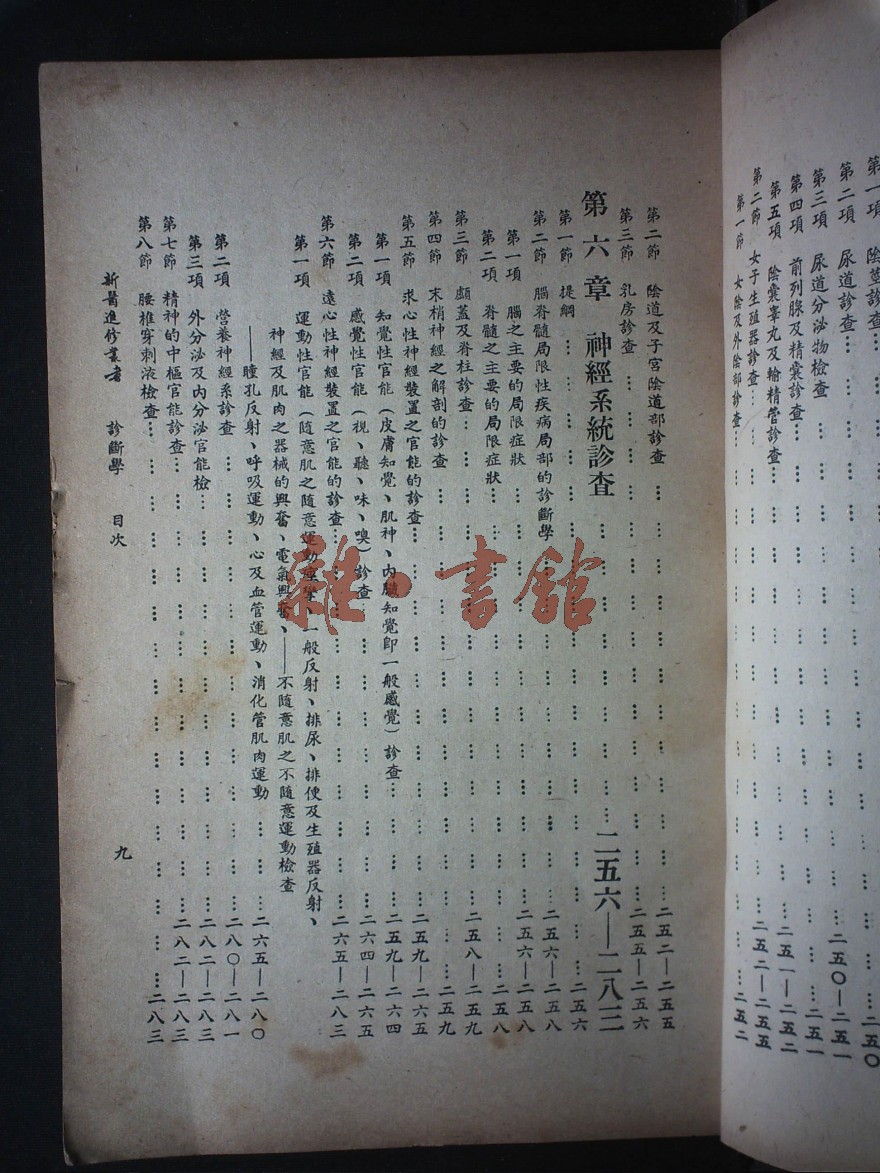 第一項 陰莖診查…
第二項 尿道診查……二五〇
第三項 尿道分泌物檢查……二五〇—二五一
第四項 前列腺及精囊診查……二五一
第五項 陰囊睾丸及輸精管診查……二五一—二五二
第二節 女子生殖器診查……二五二—二五五
第一節 女陰及外陰部診查……二五二
第二節 陰道及子宮陰道部診查……二五二—二五五
第三節 乳房診查……二五五—二五六
第六章 神經系統診査……二五六—二八三
第一節 提綱……二五六
第二節 腦脊髓局限性疾病局部的診斷學……二五六—二五八
第一項 腦之主要的局限症狀……二五六—二五八
第二項 脊髓之主要的局限症狀……二五八
第三節 顱蓋及脊柱診查……二五八—二五九
第四節 末梢神經之解剖的診查……二五九
第五節 求心性神經裝置之官能的診查……二五九—二六五
第一項 知覺性官能（皮膚知覺、肌神、內臟知覺卽一般感覺）診查……二五九—二六四
第二項 感覺性官能（視、聽、味、嗅）診查……二六四—二六五
第六節 遠心性神經裝置之官能的診查……二六五—二八三
第一項 運動性官能（隨意肌之隨意運動 一般反射、排尿、排便及生殖器反射、
神經及肌肉之器械的興奮、電氣興奮、——不隨意肌之不隨意運動檢查
——瞳孔反射、呼吸運動、心及血管運動、消化管肌肉運動……二六五—二八〇
第二項 營養神經系診查……二八〇—二八一
第三項 外分泌及內分泌官能檢……二八二—二八三
第七節 精神的中樞官能診查……二八二—二八三
第八節 腰椎穿刺液檢查……二八三
新醫進修叢書 診斷學 目次
九
雜·書館